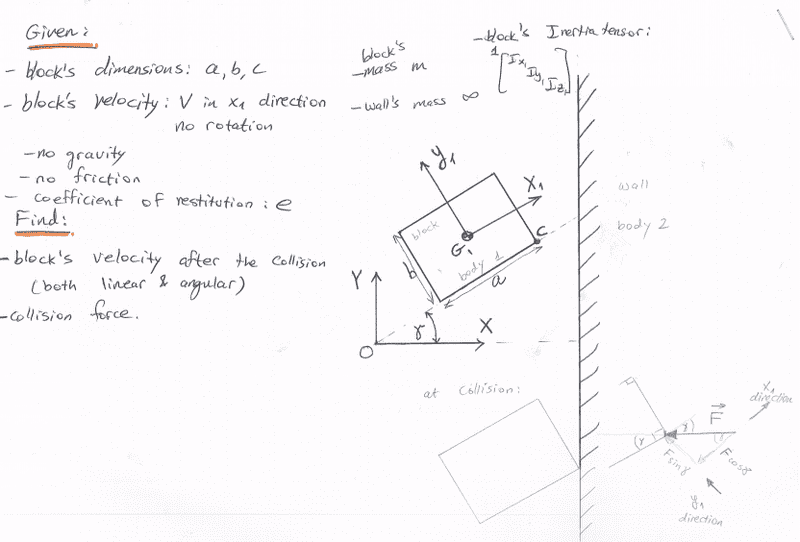 Given:
- block's dimensions: a, b, c
- block's velocity: V in x1 direction
no rotation
- no gravity
- no friction
- coefficient of restitution: e
Find:
- block's velocity after the collision
(both linear & angular)
- collision force.
block's
- mass m
- wall's mass ∞
- block's Inertia tensor:
1 [Ix1 Iy1 Iz1]
y1
X1
block
G1
C
body 1
b
a
Y
γ
X
O
wall
body 2
at Collision:
X1
direction
F
γ
γ
F sinγ
F cosγ
y1
direction